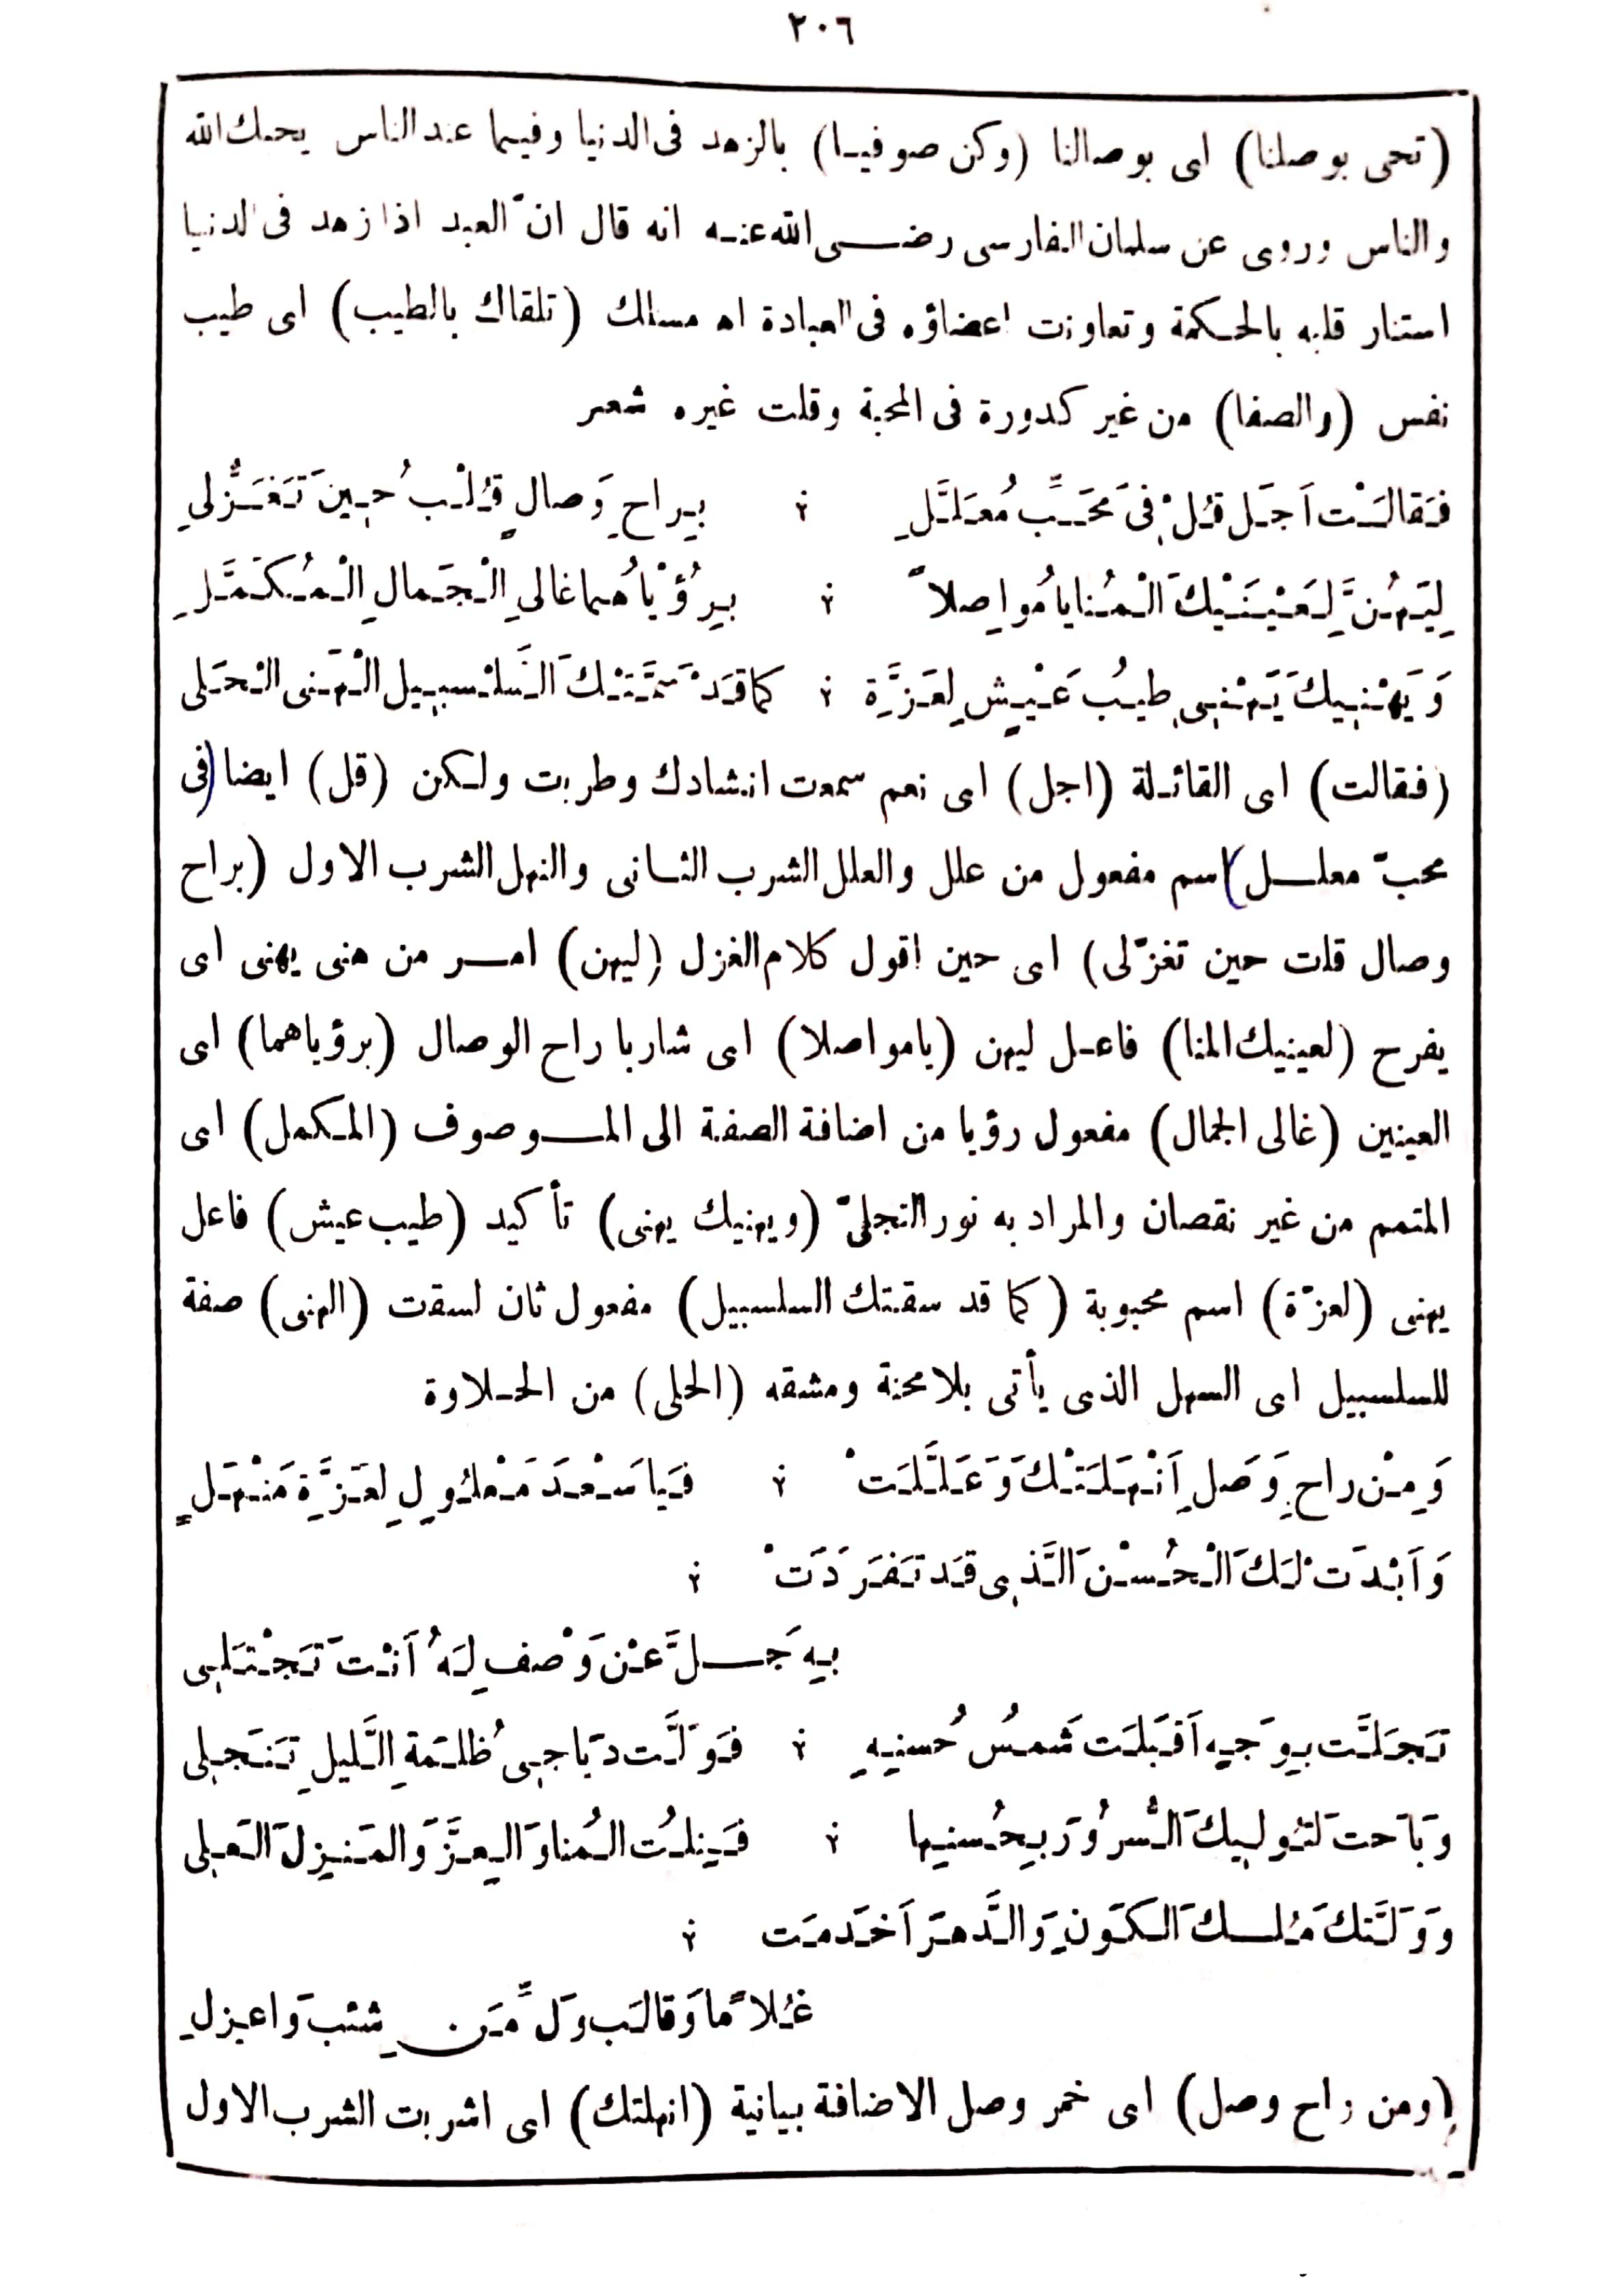 ٢٠٦
(تحى بوصلنا) اى بوصالنا (وكن صوفيا) بالزهد فى الدنيا وفيما عند الناس يحبك الله
والناس وروى عن سلمان الفارسى رضى الله عنه انه قال انّ العبد اذا زهد فى الدنيا
استنار قلبه بالحكمة وتعاونت اعضاؤه فى العبادة اه مسالك (تلقاك بالطيب) اى طيب
نفس (والصفا) من غير كدورة فى المحبة وقلت غيره شعر
فَقالَتْ اَجَل قُلْ فىَ مَحَبٍّ مُعَلَّلِ ؛ بِراحِ وَصالٍ قُلْتُ حِينَ تَغَزُّلىِ
لِيَهُنَّ لِعَيْنَيْكَ الْمُنايا مُواصِلاً ؛ بِرُؤْياهُما غالىِ الْجَمالِ الْمُكَمَّلِ
وَيَهْنِيكَ يَهْنِى طيبُ عَيْشٍ لِعَزَّةِ ؛ كما قَدْ سَقَتْكَ السَّلْسبِيل الْهَنى الْحَلى
(فقالت) اى القائلة (اجل) اى نعم سمعت انشادك وطربت ولكن (قل) ايضا (فى
محبّ معلل) اسم مفعول من علل والعلل الشرب الثانى والنهل الشرب الاول (براح
وصال قلت حين تغزّلى) اى حين اقول كلام الغزل (ليهن) امر من هنى يهنى اى
يفرح (لعينيك المنا) فاعل ليهن (يا مواصلا) اى شاربا راح الوصال (برؤياهما) اى
العينين (غالى الجمال) مفعول رؤيا من اضافة الصفة الى الموصوف (المكمل) اى
المتمم من غير نقصان والمراد به نور التجلىّ (ويهنيك يهنى) تأكيد (طيب عيش) فاعل
يهنى (لعزّة) اسم محبوبة (كما قد سقتك السلسبيل) مفعول ثان لسقت (الهنى) صفة
للسلسبيل اى السهل الذى يأتى بلا محنة ومشقه (الحلى) من الحلاوة
وَمِنْ راحِ وَصَلِ اَنْهَلَتْكَ وَعَلَّلَتْ ؛ فَيا سَعْدَ مَعْلُولِ لِعَزَّةِ مَنْهَلٍ
وَاَبْدَتْ لَكَ الْحُسْنَ الَّذِى قَد تَفَرَدَتْ ؛
بِهِ جَلَّ عَنْ وَصْفِ لَهُ اَنْتَ تَجْتَلِى
تَجَلَّت بِوَجهِ اَقبَلَت شَمسُ حُسنِهِ ؛ فَوَلَّت دَياجِىُ ظلمَةِ الَّليلِ تَنَجلِى
وَبَاحت لتُولِيكَ السُّرُورَ بِحُسنِها ؛ فَنِلتُ المُناوَ العِزَّ وَالمَنزِلَ العَلِى
وَوَلَتكَ مُلكَ الكَونِ وَالَّدهَرَ اَخدَمَت ؛
غُلاَمًا وَقالَب وَلِّ مَن شئتَ وَاعزِلِ
(ومن راح وصل) اى خمر وصل الاضافة بيانية (انهلتك) اى اشربت الشرب الاول